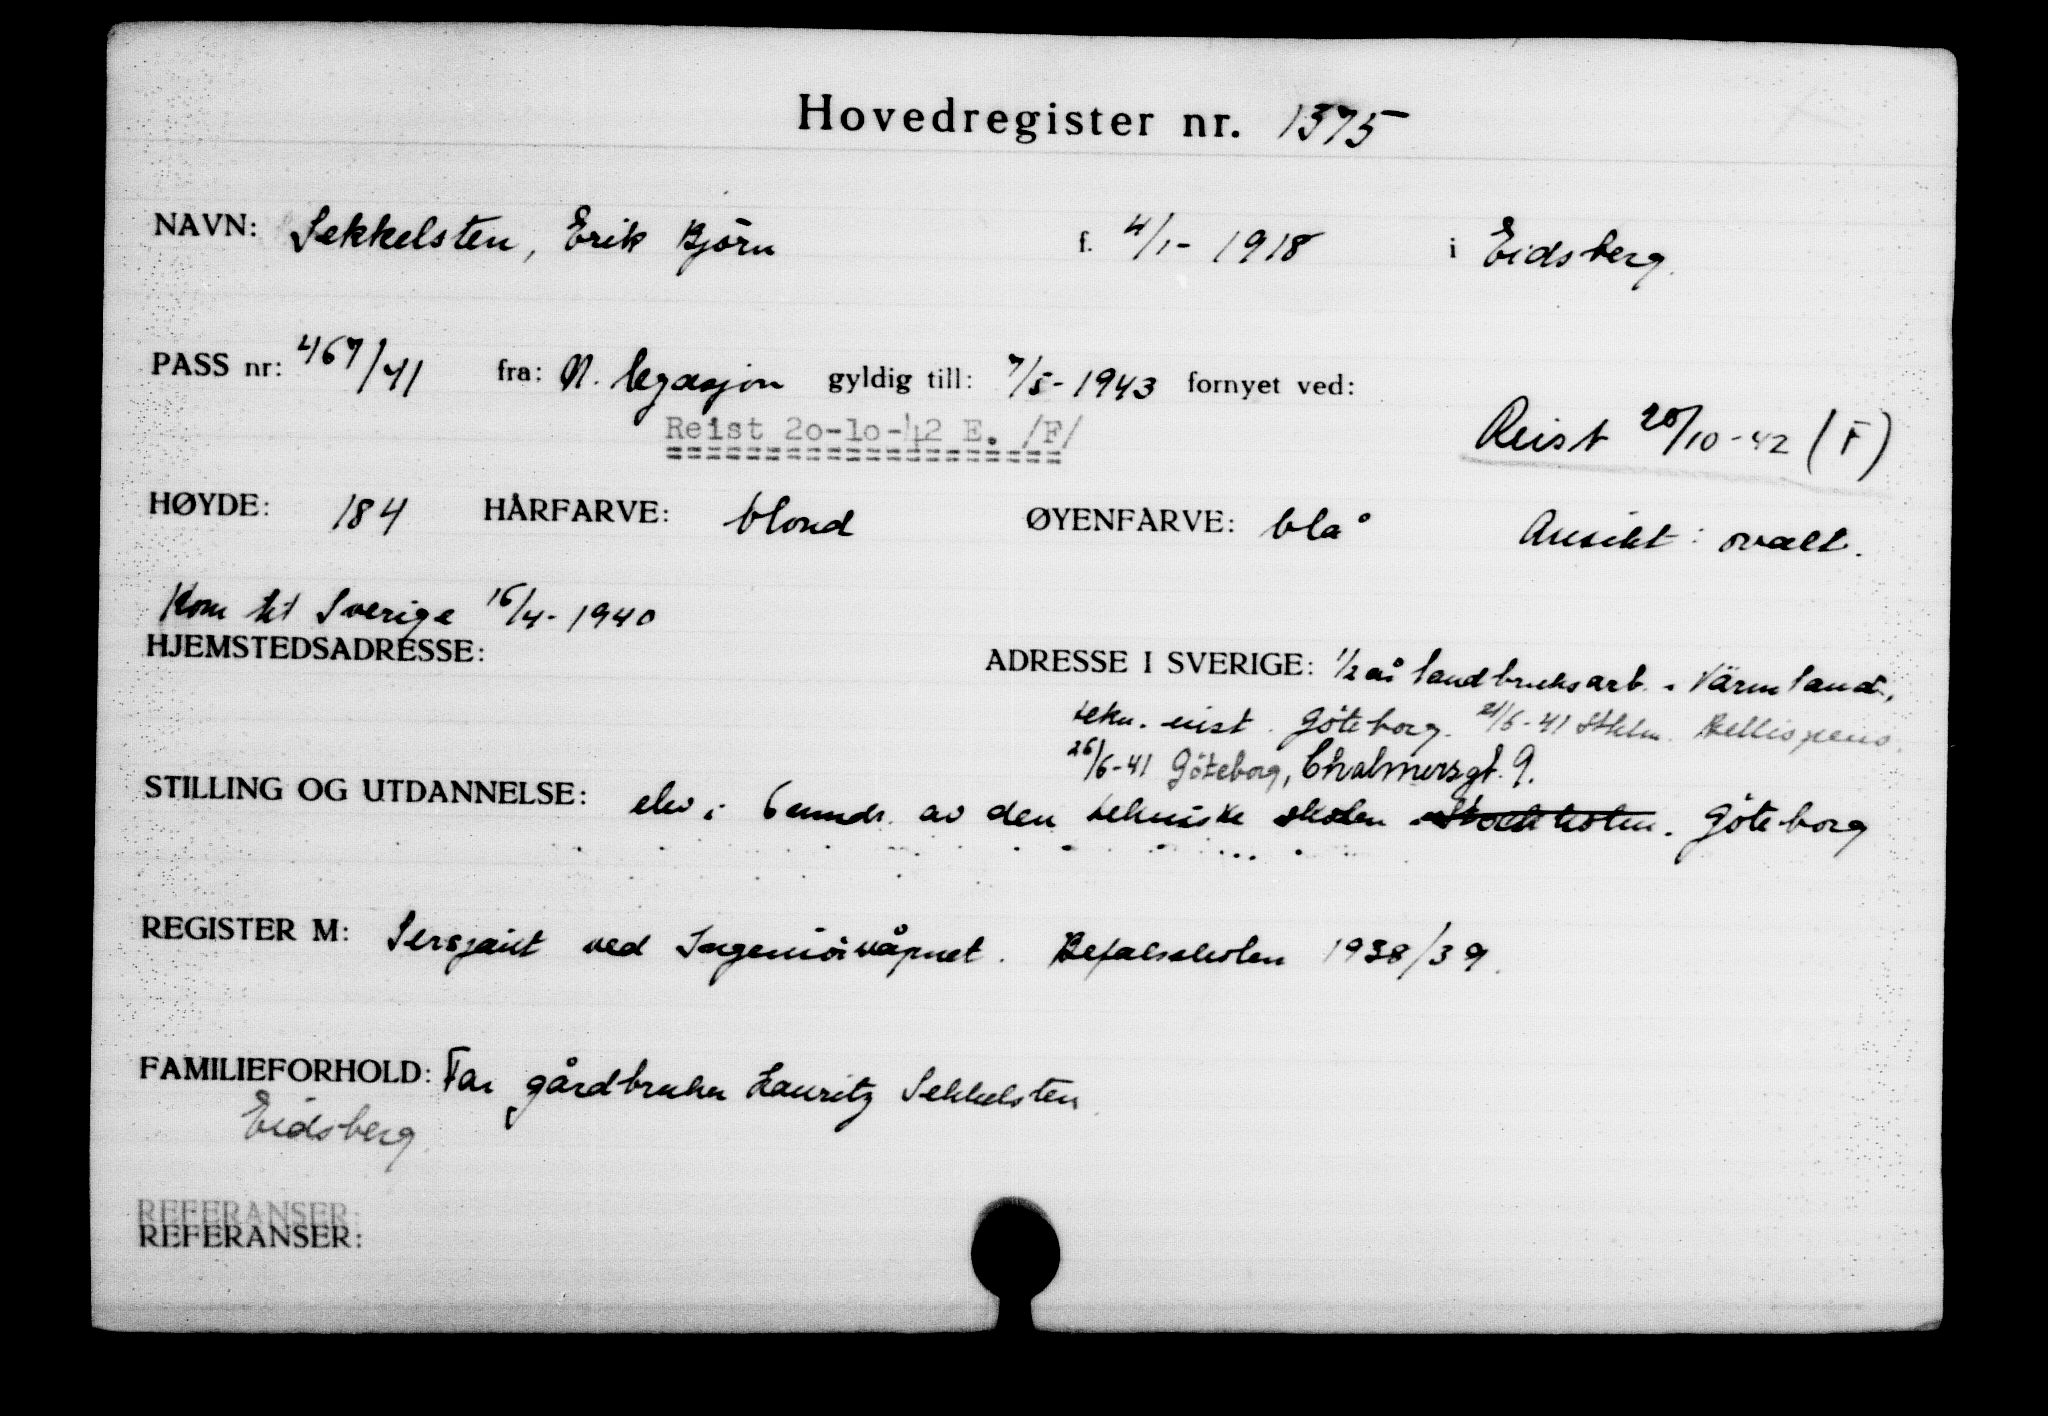 Hovedregister nr. 1375
NAVN: Sekkelsten, Erik Bjørn f. 4/1- 1918 i Eidsberg.
PASS nr: 467/41 fra: N. legasjon gyldig till: 7/5- 1943 fornyet ved:
Reist 20-10-42 E. /F/
Reist 20/10-42 (F)
HØYDE: 184 HÅRFARVE: blond ØYENFARVE: blå Ansikt: ovalt.
Kom til Sverige 16/4- 1940
HJEMSTEDSADRESSE:
ADRESSE I SVERIGE: 1/2 år landbruksarb. i Värmland,
tekn. inst. Göteborg. 21/6-41 Sthlm. Bellis pens.
26/6-41 Göteborg, Chalmersgt. 9.
STILLING OG UTDANNELSE: elev i 6 mndr. av den tekniske skolen i Stockholm. Göteborg
REGISTER M: Sersjant ved Ingeniørvåpnet. Befalsskolen 1938/39.
FAMILIEFORHOLD: Far gårdbruker Lauritz Sekkelsten
Eidsberg.
REFERANSER:
REFERANSER: